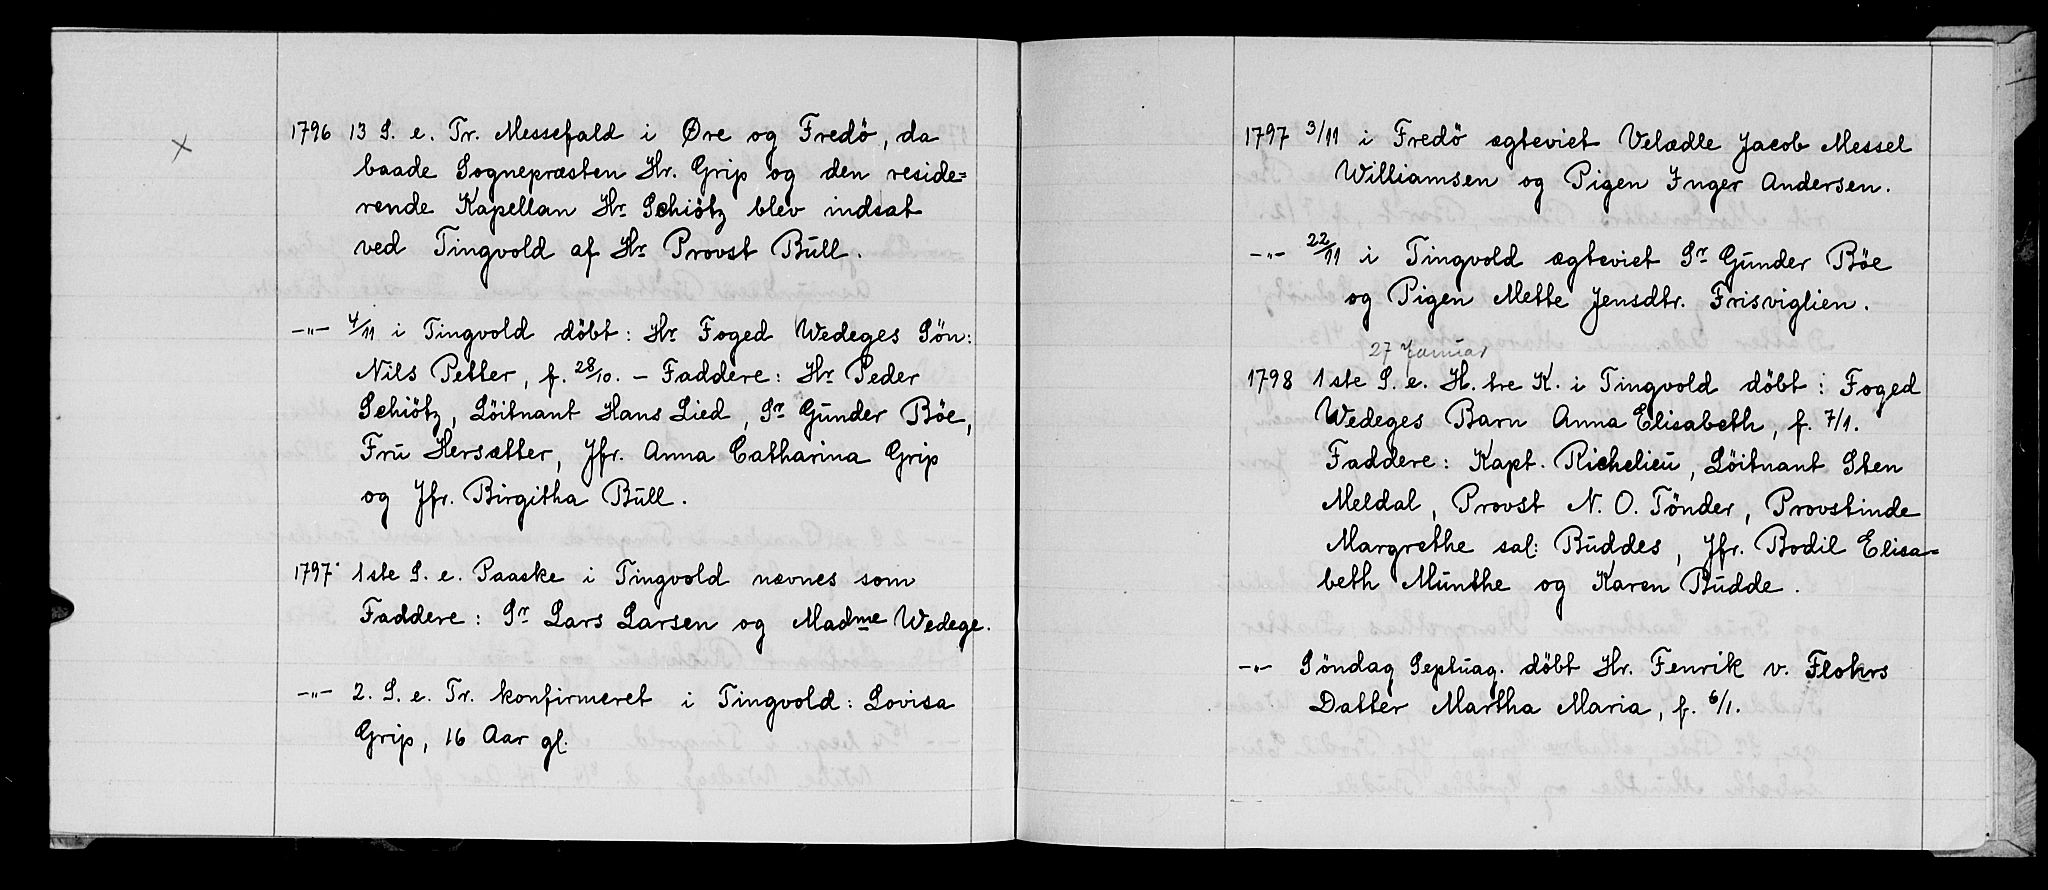 1796 13 S. e. Tr. Messefald i Øre og Fredö, da
baade Sognepræsten Hr. Grip og den reside=
rende Kapellan Hr Schiötz blev indsat
ved Tingvold af Hr Provst Bull.
-„- 4/11 i Tingvold döbt: Hr Foged Wedeges Sön:
Nils Petter, f. 28/10. – Faddere: Hr Peder
Schiötz, Löitnant Hans Lied, Sr Gunder Böe,
Fru Hersætter, Jfr. Anna Catharina Grip
og Jfr. Birgitha Bull.
1797 1ste S. e. Paaske i Tingvold nævnes som
Faddere: Sr Lars Larsen og Madme Wedege.
-„- 2. S. e. Tr. konfirmeret i Tingvold: Lovisa
Grip, 16 Aar gl.
1797 3/11 i Fredö ægteviet Velædle Jacob Messel
Williamsen og Pigen Inger Andersen.
-„- 22/11 i Tingvold ægteviet Sr Gunder Böe
og Pigen Mette Jensdtr. Frisviglien.
27 Januar
1798 1ste S. e. H. tre K. i Tingvold döbt: Foged
Wedeges Barn Anna Elisabeth, f. 7/1.
Faddere: Kapt. Richelieu, Löitnant Sten
Meldal, Provst N. O. Tönder, Provstinde
Margrethe sal: Buddes, Jfr. Bodil Elisa=
beth Munthe og Karen Budde.
-„- Söndag Septuag. döbt Hr. Fenrik v. Flokrs
Datter Martha Maria, f. 6/1.